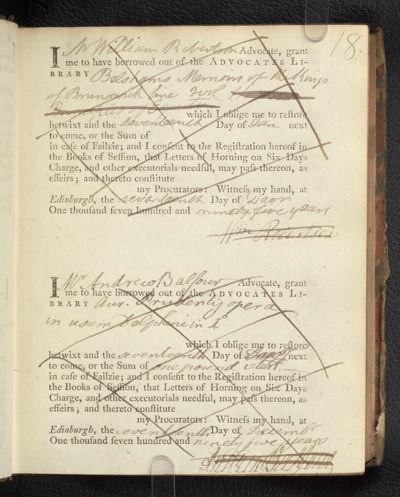 18.
I Mr William Robertson Advocate, grant
me to have borrowed out of the ADVOCATES LI-
BRARY Belshams Memoirs of the Kings
of Brunswick line 2 vol
which I oblige me to restore
betwixt and the seventeenth Day of Jan next
to come, or the Sum of
in case of Failzie; and I consent to the Registration hereof in
the Books of Session, that Letters of Horning on Six Days
Charge, and other executorials needful, may pass thereon, as
effeirs; and thereto constitute
my Procurators: Witness my hand, at
Edinburgh, the seventeenth Day of Decr
One thousand seven hundred and ninety five years
Wm Robertson
I Mr Andrew Balfour Advocate, grant
me to have borrowed out of the ADVOCATES LI-
BRARY Aur. Prudentij opera
in usum Delphini in 4
which I oblige me to restore
betwixt and the seventeenth Day of Jany next
to come, or the Sum of one pound Sterl.
in case of Failzie; and I consent to the Registration hereof in
the Books of Session, that Letters of Horning on Six Days
Charge, and other executorials needful, may pass thereon, as
effeirs; and thereto constitute
my Procurators: Witness my hand, at
Edinburgh, the seventeenth Day of December
One thousand seven hundred and ninety five years